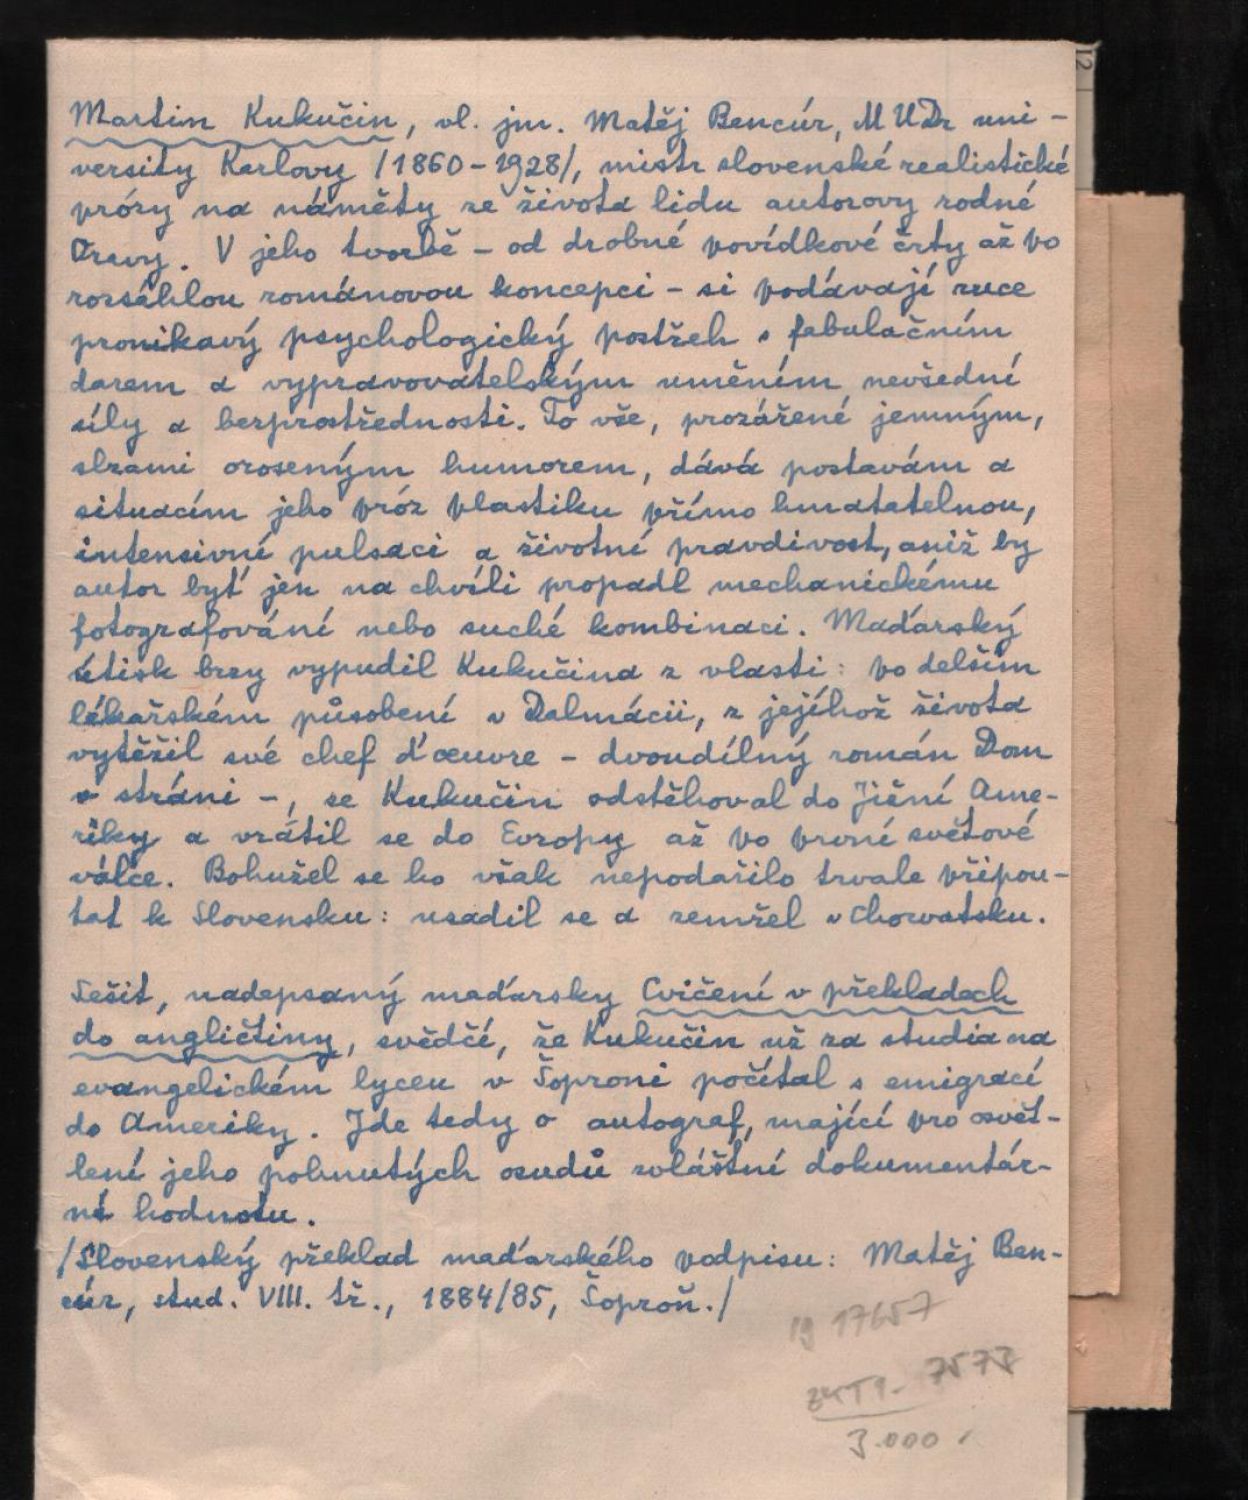 Martin Kukučín, vl. jm. Matěj Bencúr, MUDr uni-
versity Karlovy /1860-1928/, mistr slovenské realistické
prózy na náměty ze života lidu autorovy rodné
Oravy. V jeho tvorbě - od drobné povídkové črty až po
rozsáhlou románovou koncepci - si podávají ruce
pronikavý psychologický postřeh s fabulačním
darem a vypravovatelským uměním nevšední
síly a bezprostřednosti. To vše, prozářené jemným,
slzami oroseným humorem, dává postavám a
situacím jeho próz plastiku přímo hmatatelnou,
intensivní pulsaci a životní pravdivost, aniž by
autor byť jen na chvíli propadl mechanickému
fotografování nebo suché kombinaci. Maďarský
útisk brzy vypudil Kukučína z vlasti: po delším
lékařském působení v Dalmácii, z jejíhož života
vytěžil své chef d'œuvre - dvoudílný román Dom
v stráni -, se Kukučín odstěhoval do Jižní Ame-
riky a vrátil se do Evropy až po první světové
válce. Bohužel se ho však nepodařilo trvale připou-
tat k Slovensku: usadil se a zemřel v Chorvatsku.
Sešit, nadepsaný maďarsky Cvičení v překladech
do angličtiny, svědčí, že Kukučín už za studia na
evangelickém lyceu v Šoproni počítal s emigrací
do Ameriky. Jde tedy o autograf, mající pro osvět-
lení jeho pohnutých osudů zvláštní dokumentár-
ní hodnotu.
/Slovenský překlad maďarského podpisu: Matěj Ben-
cúr, stud. VIII. tř., 1884/85, Šoproň./
19 17657
7573
3.000
12